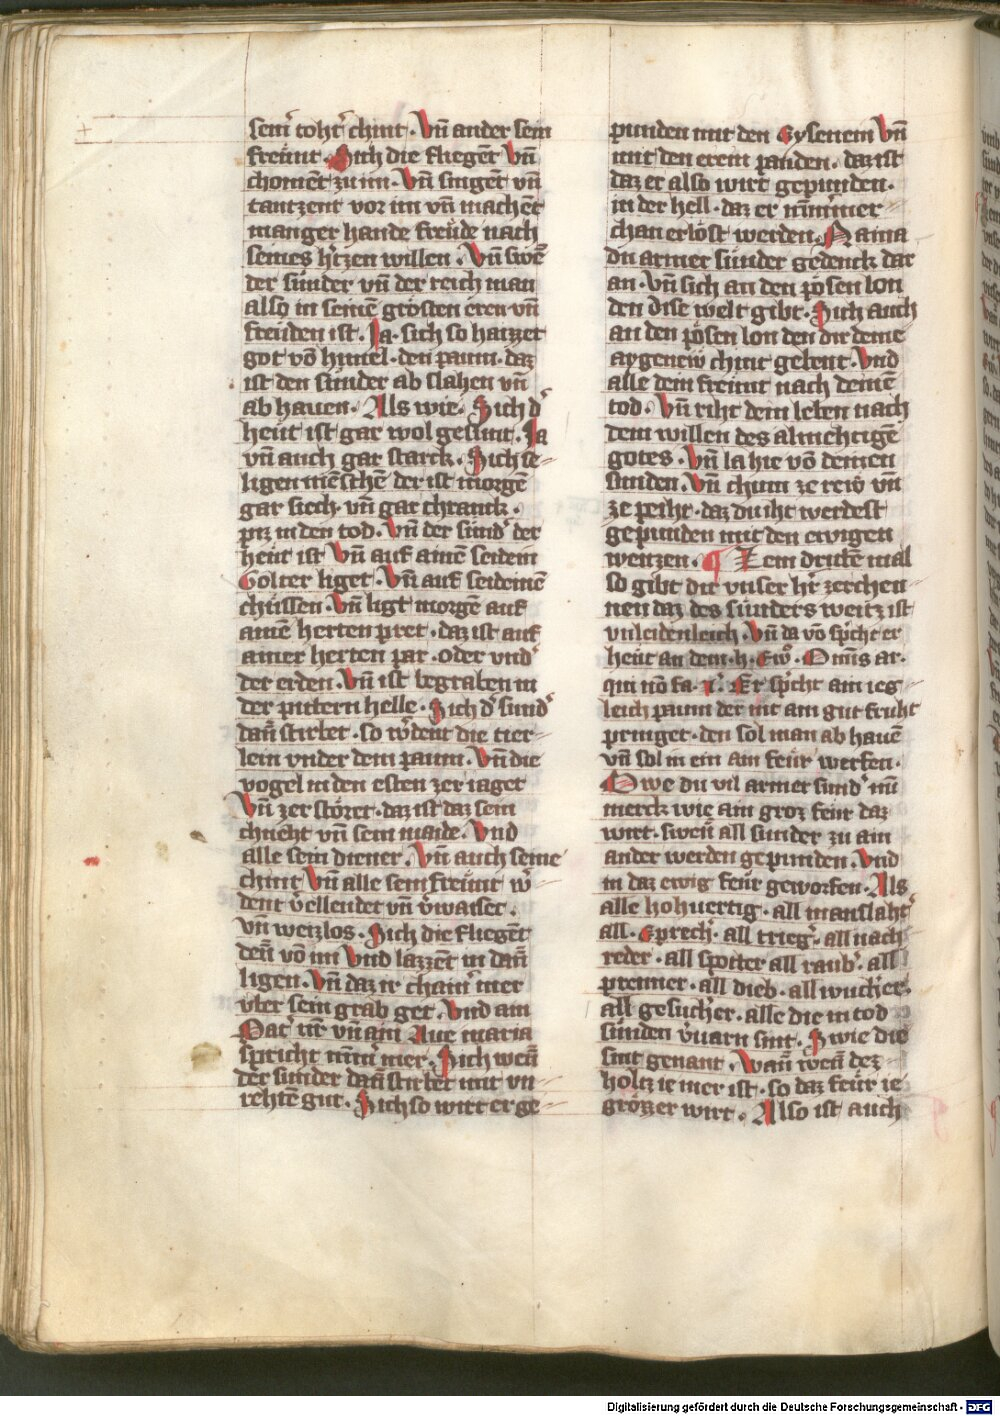 sein̾ toht̾ chint · Vn̄ ander sein
freünt · Sich die fliegēt Vn̄
chomēt zu im · Vn̄ singēt vn̄
tantzent vor im vn̄ machēt
manger hande freüde nach
seines h̾rzen willen · Vn̄ swē
der sünder vn̄ der reich man
also in seinē grösten eren vn̄
freüden ist · Ja · sich so haizzet
got vō himel · den paum · daz
ist den sünder ab slahen vn̄
ab hauen · Als wie · Sich d̾
heüt ist gar wol gesunt · Ja
vn̄ auch gar starck · Sich se-
ligen mēschē der ist morgē
gar siech · vn̄ gar chranck ·
piz in den tod · Vn̄ der sünd̾ der
heüt ist Vn̄ auf ainē seidein
Golter liget · Vn̄ auf seideinē
chüssen · Vn̄ ligt morgē auf
ainē herten pret · daz ist auf
ainer herten par · oder vnd̾
der erden · Vn̄ ist begraben in
der pittern helle · Sich d̾ sünd̾
dan̄ stirbet · so w̾dent die tier-
lein vnder dem paum · Vn̄ die
vogel in den esten zer iaget
Vn̄ zer störet · daz ist daz sein
chneht vn̄ sein maide · Vnd
alle sein diener · Vn̄ auch seine
chint Vn̄ alle sein freünt w̾-
dent v̾ellendet vn̄ v̾waiset ·
vn̄ weizlos · Sich die fliegēt
den̄ vō im Vnd lazzēt in dan̄
ligen · Vn̄ daz ir chain̾ mer
vber sein grab get · Vnd ain
Pat̾ nr̄ vn̄ ain Aue maria
spricht nīm̾ mer · Sich wen̄
der sünder dan̄ stirbet mit vn-
rehtē gut · Sich so wirt er ge-
punden mit den Eyseneim Vn̄
mit den erein panden · daz ist
daz er also wirt gepunden ·
in der hell · daz er nīm̄mer
chan erlöst werden · Naina
du armer sünder gedenck dar
an · Vn̄ sich an den pösen lon
den dise welt gibt · Sich auch
an den pösen lon den dir deine
aygenew chint gebent · Vnd
alle dein freünt nach deinē
tod · Vn̄ riht dein leben nach
dem willen des almehtigē
gotes · Vn̄ la hie vō deinen
sünden · Vn̄ chum ze rew̄ vn̄
ze peiht · daz du iht werdest
gepunden mit den ewigen
weitzen · ¶ Zem dritē mal
so gibt dir vnser h̾r ze erchen-
nen daz des sünders weitz ist
vnleidenleich · Vn̄ da vō sp̾cht er
heüt an dem · h · Ew̾ · Om̄is ar·
qui nō fa · r̾ · Er sp̾cht ain ieg-
leich paum der nit ain gut fruht
pringet · den sol man ab hauē
vn̄ sol in ein ain feür werfen ·
Owe du vil armer sünd̾ nū
merck wie ain groz feür daz
wirt · swen̄ all sunder zu ain
ander werden gepunden · Vnd
in daz ewig feür geworfen · Als
alle hohuertig · all manslaht̾
all · Eprech̾ · all trieg̾ · all nach-
reder · all spotter all raub̾ · all
prenner · all dieb · all wuch̾er ·
all gesuch̾er · alle die in tod
sünden v̾uarn sint · Swie die
sint genant · Wan̄ wen̄ dez
holtz ie mer ist · so daz feür ie
grözzer wirt · Also ist auch
Digitalisierung gefördert durch die Deutsche Forschungsgemeinschaft - DFG